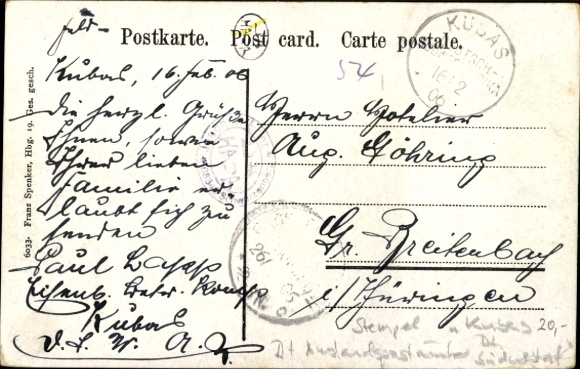 Feld-
Postkarte. Post card. Carte postale.
Kubas, 16. Feb. 06
Die herzl. Grüße
Ihnen, sowie
Ihrer lieben
Familie er-
laubt sich zu
senden
Paul Lapp
Eisenb. Betr. Komp
Kubas
D. S. W. A.
54
KUBAS
16/2
06
Herrn Hotelier
Aug. Göhring
Gr. Breitenbach
i/Thüringen
Stempel "Kubas 20,-
Dt.
Dt Auslandspostämter Südwestaf"
6033. Franz Spenker, Hbg. 19. Ges. gesch.